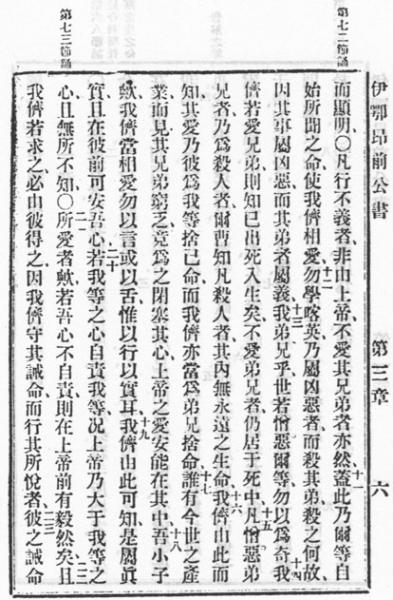 伊鄂昂前公書 第三章 六
第七二節誦
而顯明○凡行不義者、非由上帝不愛其兄弟者亦然十一蓋此乃爾等自
始所聞之命使我儕相愛十二勿學喀英乃屬凶惡者而殺其弟殺之何故、
因其事屬凶惡而其弟者屬義十三我弟兄乎世若憎惡爾等勿以爲奇十四我
儕若愛兄弟則知已出死入生矣不愛弟兄者仍居于死中十五凡憎惡弟
兄者乃爲殺人者爾曹知凡殺人者其內無永遠之生命十六我儕由此而
知其愛乃彼爲我等捨已命而我儕亦當爲弟兄捨命十七誰有今世之產
業而見其兄弟窮乏竟爲之閉塞其心上帝之愛安能在其中十八吾小子
歟我儕當相愛勿以言或以舌惟以行以實耳十九我儕由此可知是屬眞
實且在彼前可安吾心二十若我等之心自責我等况上帝乃大于我等之
第七三節誦
心且無所不知○二一所愛者歟若吾心不自責則在上帝前有毅然矣二二且
我儕若求之必由彼得之因我儕守其誡命而行其所悅者二三彼之誡命